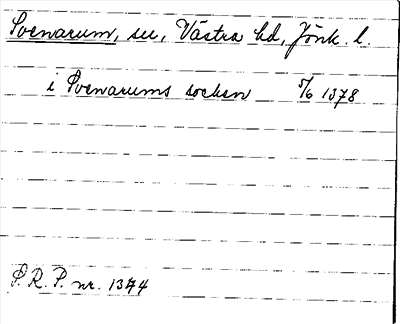 Svenarum, su, Västra hd, Jönk. l.
i Svenarums socken 5/6 1378
S. R. P. nr. 1344